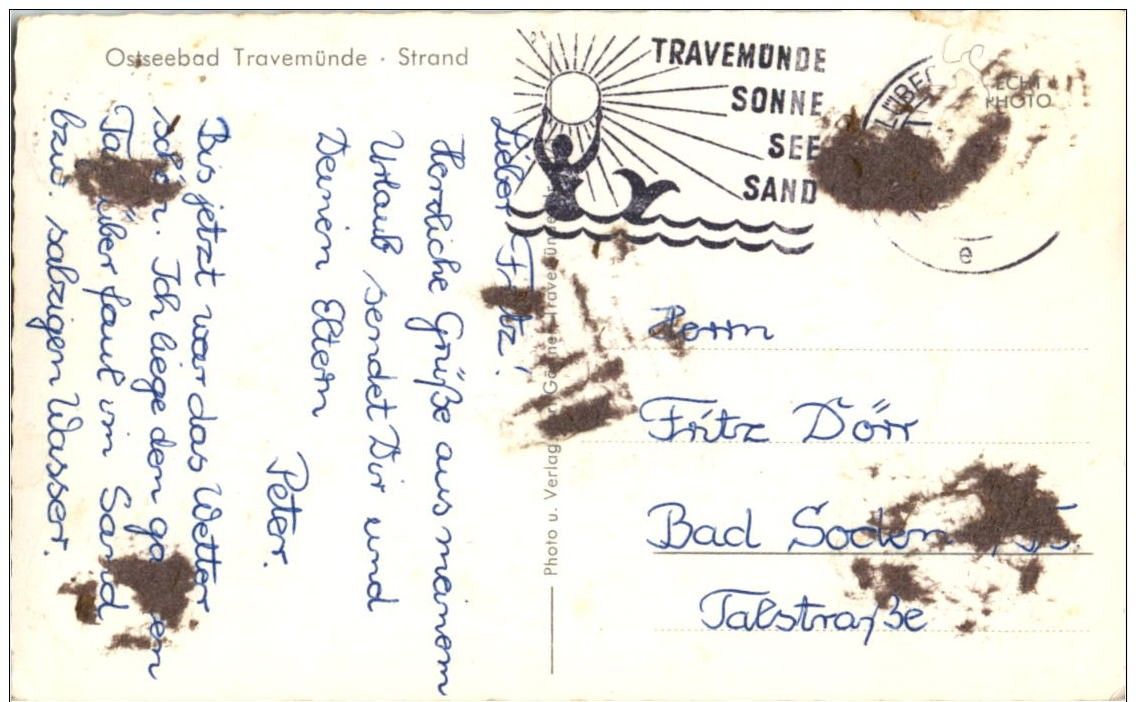 Ostseebad Travemünde · Strand
TRAVEMÜNDE
SONNE
SEE
SAND
ECHT
PHOTO
LÜBE
e
Lieber Fritz!
Herzliche Grüße aus meinem
Urlaub sendet Dir und
Deinen Eltern
Peter.
Bis jetzt war das Wetter
schön. Ich liege den ga en
Ta über faul im Sand
bzw. salzigen Wasser.
Photo u. Verlag Travemünde
Herrn
Fritz Dörr
Bad Soden
Talstraße